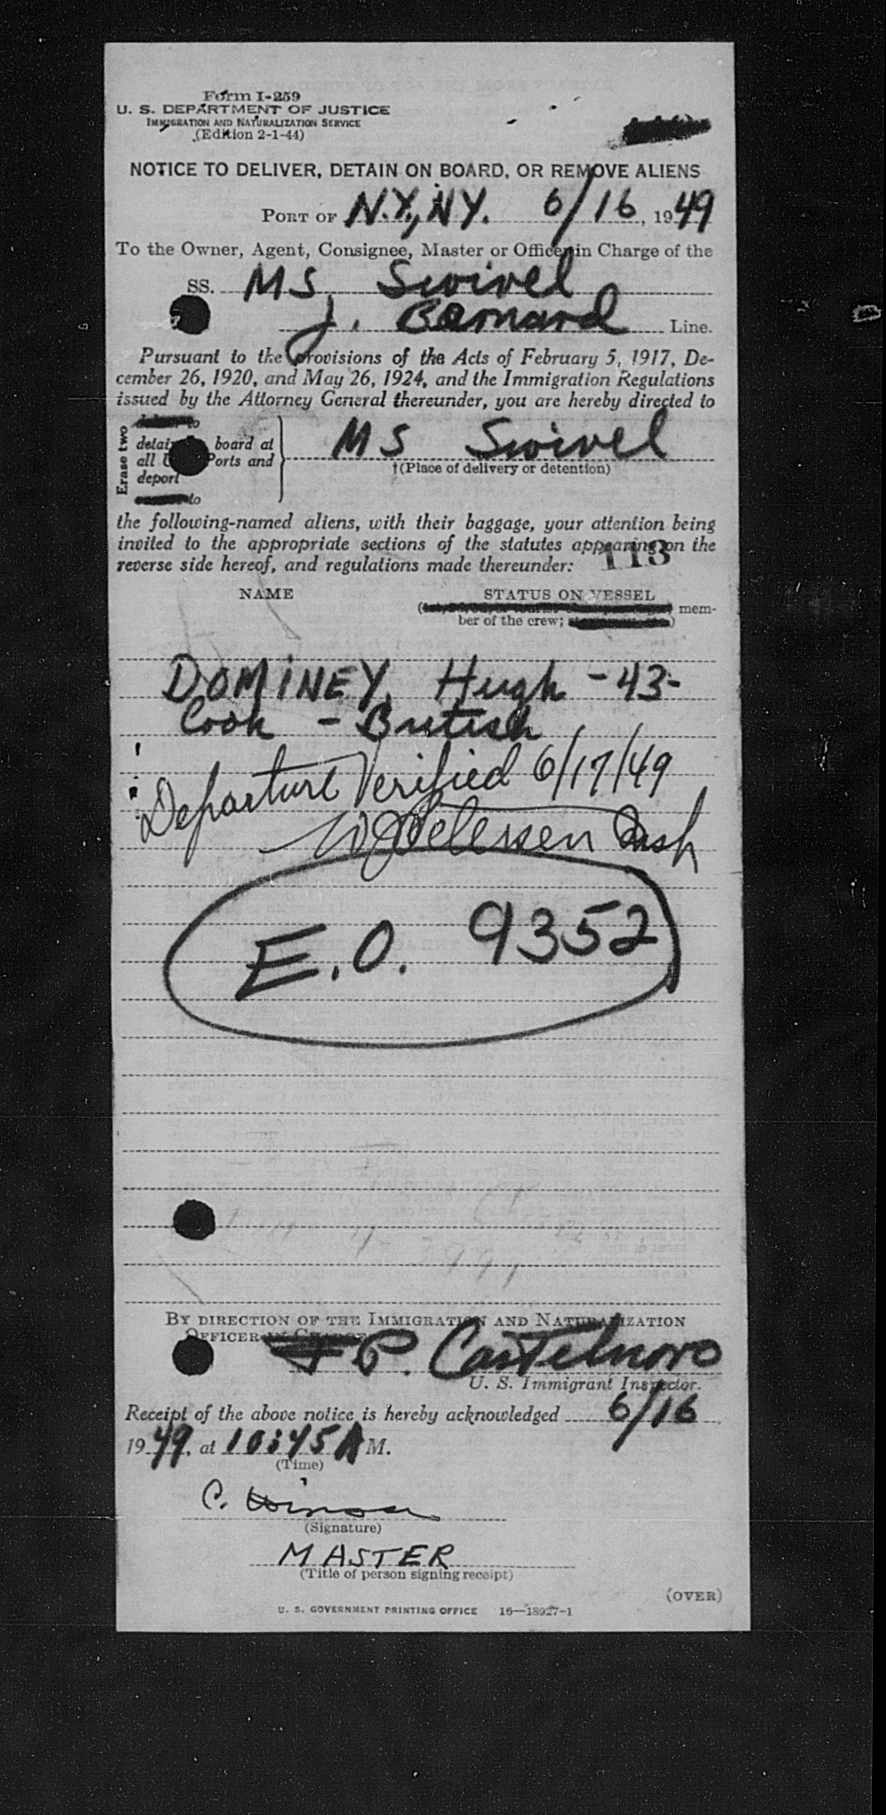 Form I-259
U. S. DEPARTMENT OF JUSTICE
IMMIGRATION AND NATURALIZATION SERVICE
(Edition 2-1-44)
NOTICE TO DELIVER, DETAIN ON BOARD, OR REMOVE ALIENS
PORT OF N.Y., N.Y. 6/16, 1949
To the Owner, Agent, Consignee, Master or Officer in Charge of the
SS. MS Swivel
J. Barnard Line.
Pursuant to the provisions of the Acts of February 5, 1917, De-
cember 26, 1920, and May 26, 1924, and the Immigration Regulations
issued by the Attorney General thereunder, you are hereby directed to
Erase two
to
detain board at
all Ports and
deport
to
MS Swivel
†(Place of delivery or detention)
the following-named aliens, with their baggage, your attention being
invited to the appropriate sections of the statutes appearing on the
reverse side hereof, and regulations made thereunder: 113
NAME STATUS ON VESSEL
( mem-
ber of the crew; )
DOMINEY, Hugh -43-
Cook - British
Departure Verified 6/17/49
E.O. 9352
BY DIRECTION OF THE IMMIGRATION AND NATURALIZATION
OFFICER IN CHARGE
P. Castelnovo
U. S. Immigrant Inspector.
Receipt of the above notice is hereby acknowledged 6/16,
1949, at 10:45 A M.
(Time)
C.
(Signature)
MASTER
(Title of person signing receipt)
(OVER)
U. S. GOVERNMENT PRINTING OFFICE 16—18927-1